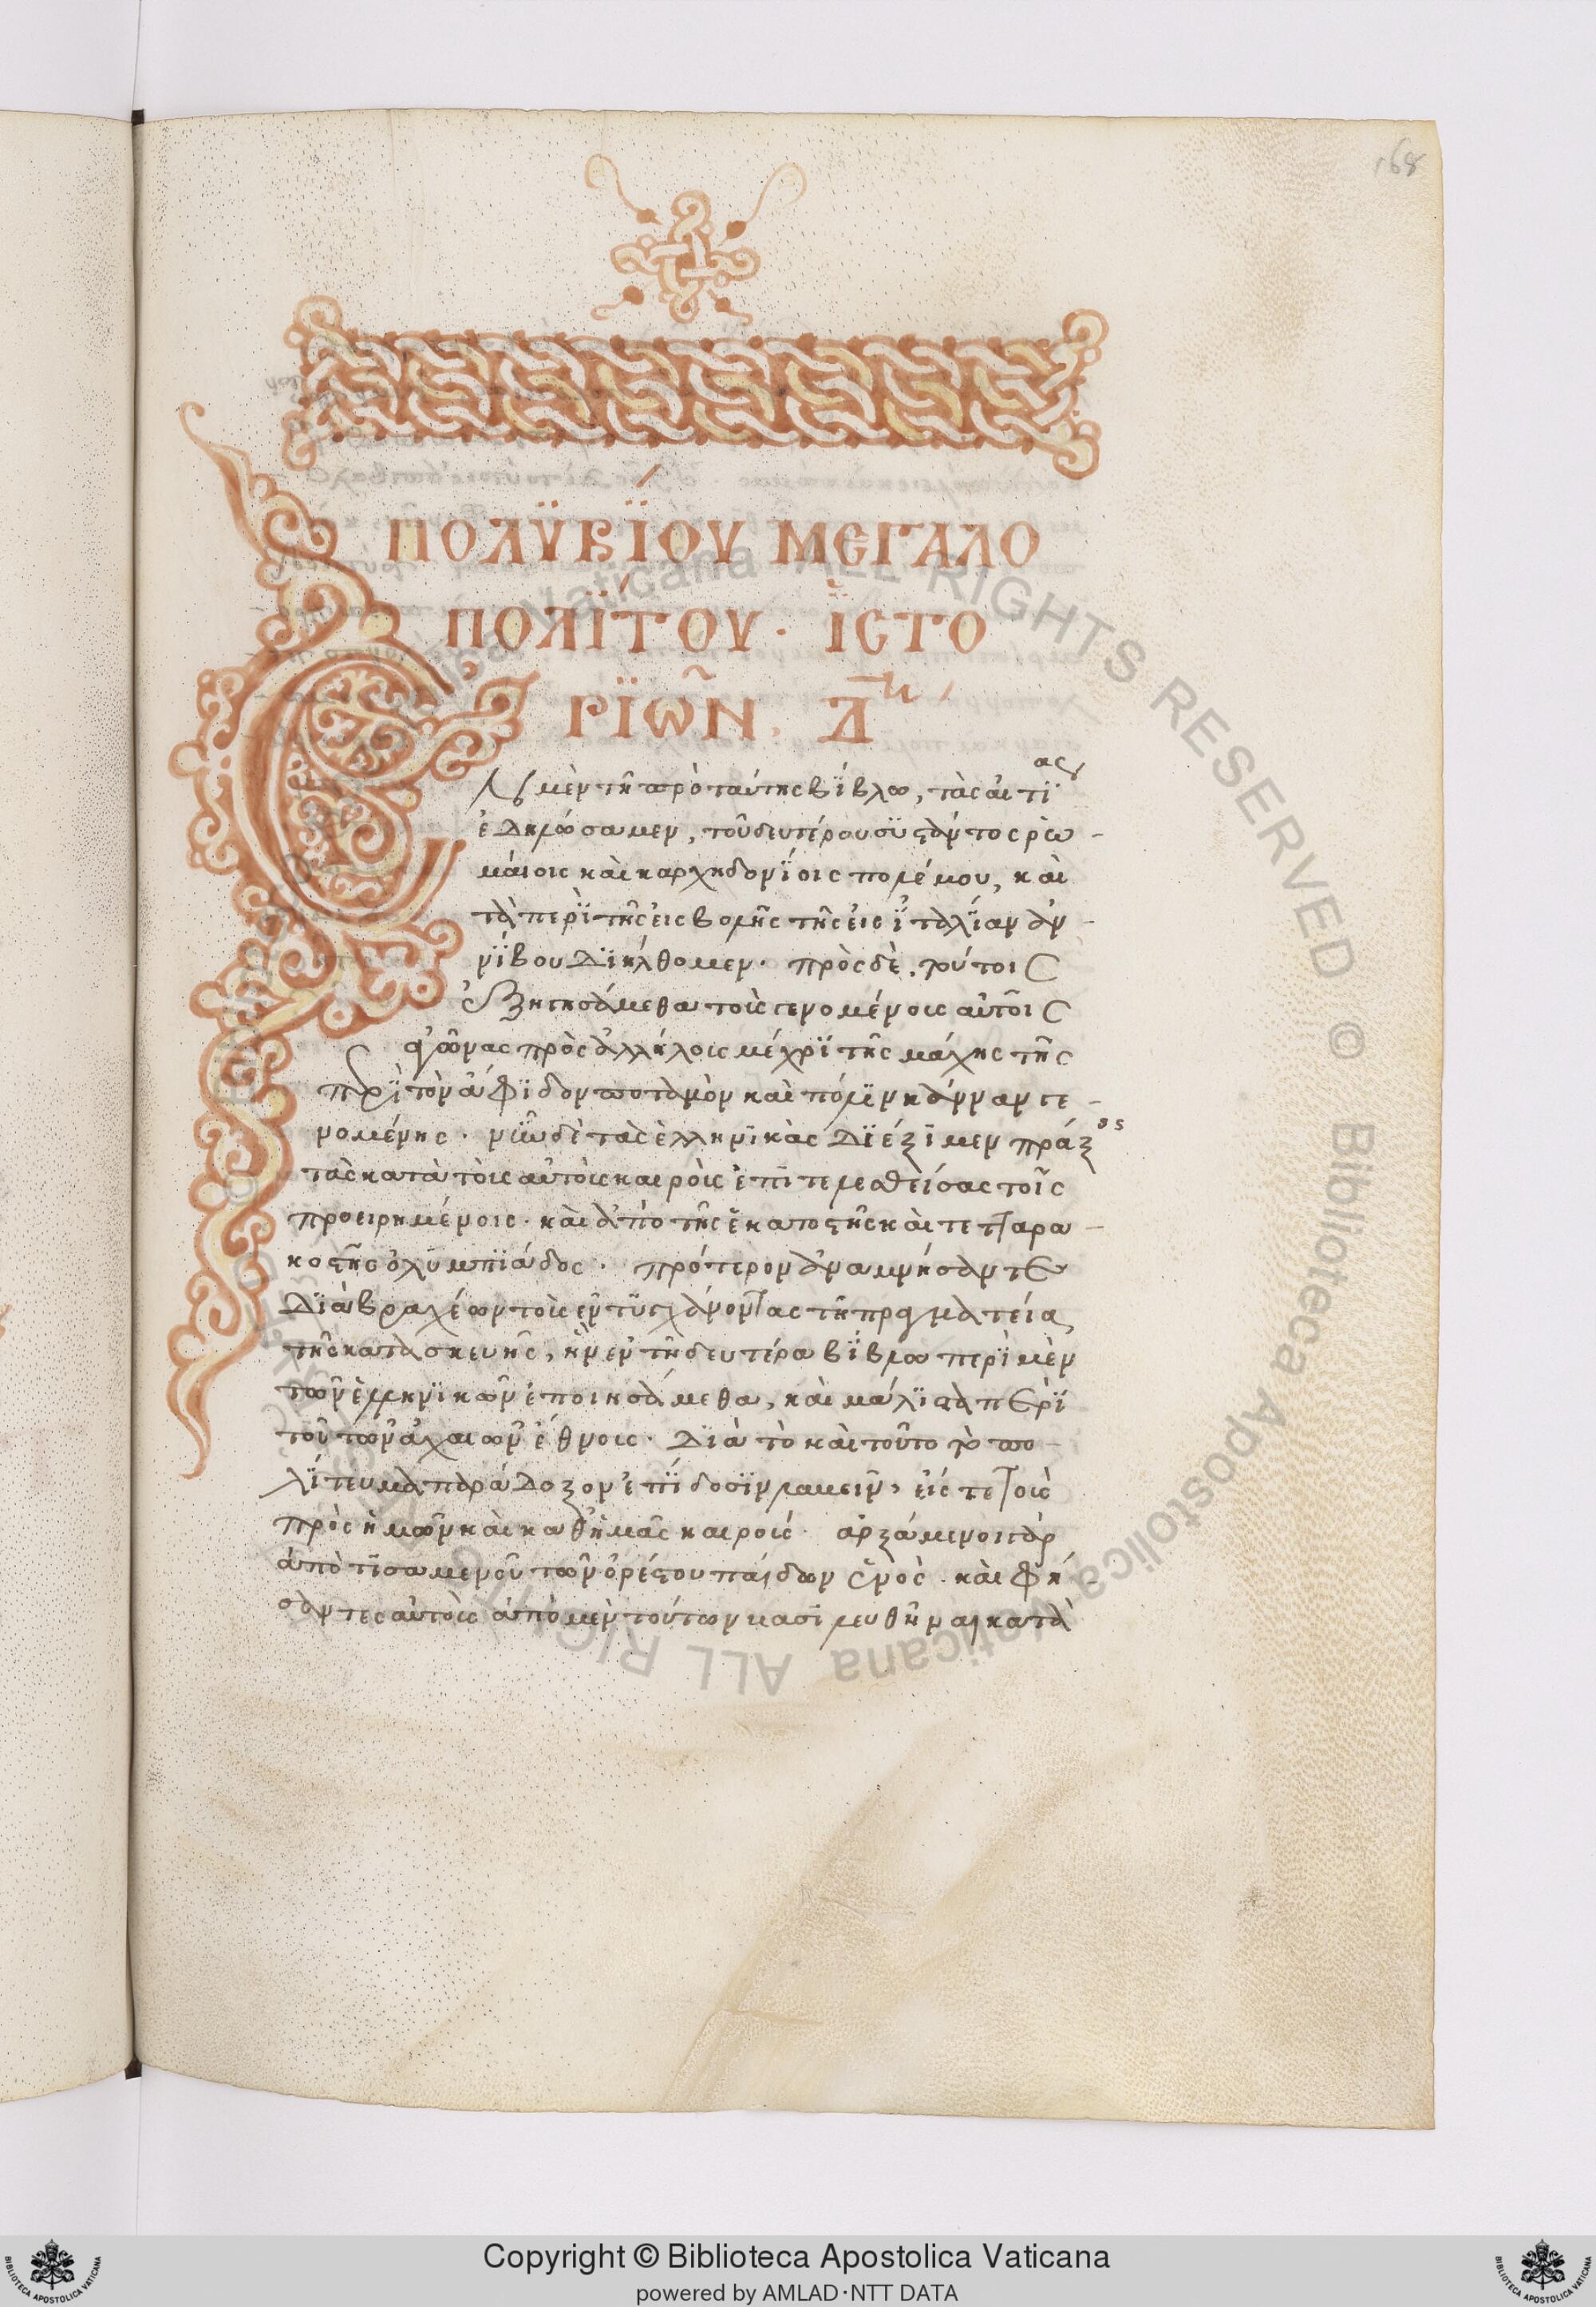 168
ΠΟΛΫΒΪΟΥ ΜΕΓΑΛΟ
ΠΟΛΪΤΟΥ · ΪΣΤΟ
ΡΪΩ͂Ν. Δη
Ἐν μὲν τῆ πρὸ ταύτης βΐβλω, τὰς αἰτΐας
ἐδηλώσαμεν, τοῦ δευτέρου συστάντος ρω
μαίοις καὶ καρχηδονΐοις πολέμου, καὶ
τὰ περῒ τῆς εἰσβολῆς τῆς εἰς ϊταλΐαν ἀν
νΐβου διήλθομεν· πρὸς δὲ τούτοις
ἐξηγησάμεθα τοὺς γενομένους αὐτοῖς
ἀγῶνας πρὸς ἀλλήλους μέχρϊ τῆς μάχης τῆς
περῒ τὸν ἄφϊδον ποταμὸν καὶ πόλϊν κάνναν γε
νομένης · νῦν δὲ τὰς ἑλληνϊκὰς διέξϊμεν πράξεις
τὰς κατὰ τοὺς αὐτοὺς καιροὺς ἐπϊτελεσθείσας τοῖς
προειρημένοις · καὶ ἀπὸ τῆς ἑκατοστῆς καὶ τετταρα
κοστῆς ὀλυμπϊάδος · πρότερον ἀναμνήσαντες
Διὰ βραχέων τοὺς ἐντυγχάνοντας τῆ πραγματεία
τῆς κατασκευῆς, ἣν ἐν τῆ δευτέρα βΐβλω περῒ μὲν
τῶν ἑλληνϊκῶν ἐποιησάμεθα, καὶ μάλϊστα περῒ
τοῦ τῶν ἀχαιῶν ἔθνους · Διὰ τὸ καὶ τοῦτο τὸ πο
λΐτευμα παράδοξον ἐπΐδοσϊν λαβεῖν, εἴς τε τοὺς
πρὸς ἡμῶν καὶ καθ' ἡμᾶς καιρούς · ἀρξάμενοι γὰρ
ἀπὸ τϊσαμενοῦ τῶν ὀρέστου παίδων ἑνὸς · καὶ φή
σαντες αὐτοὺς ἀπὸ μὲν τούτων βασϊλευθῆναι κατὰ
Copyright © Biblioteca Apostolica Vaticana
powered by AMLAD·NTT DATA